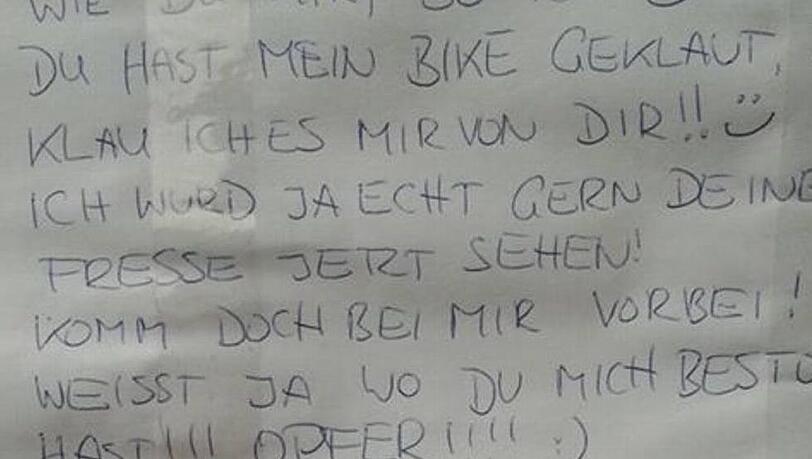 WIE DU
DU HAST MEIN BIKE GEKLAUT,
KLAU ICH ES MIR VON DIR!! Ü
ICH WÜRD JA ECHT GERN DEINE
FRESSE JETZT SEHEN!
KOMM DOCH BEI MIR VORBEI!
WEISST JA WO DU MICH BESTO
HAST!!! OPFER!!!! :)